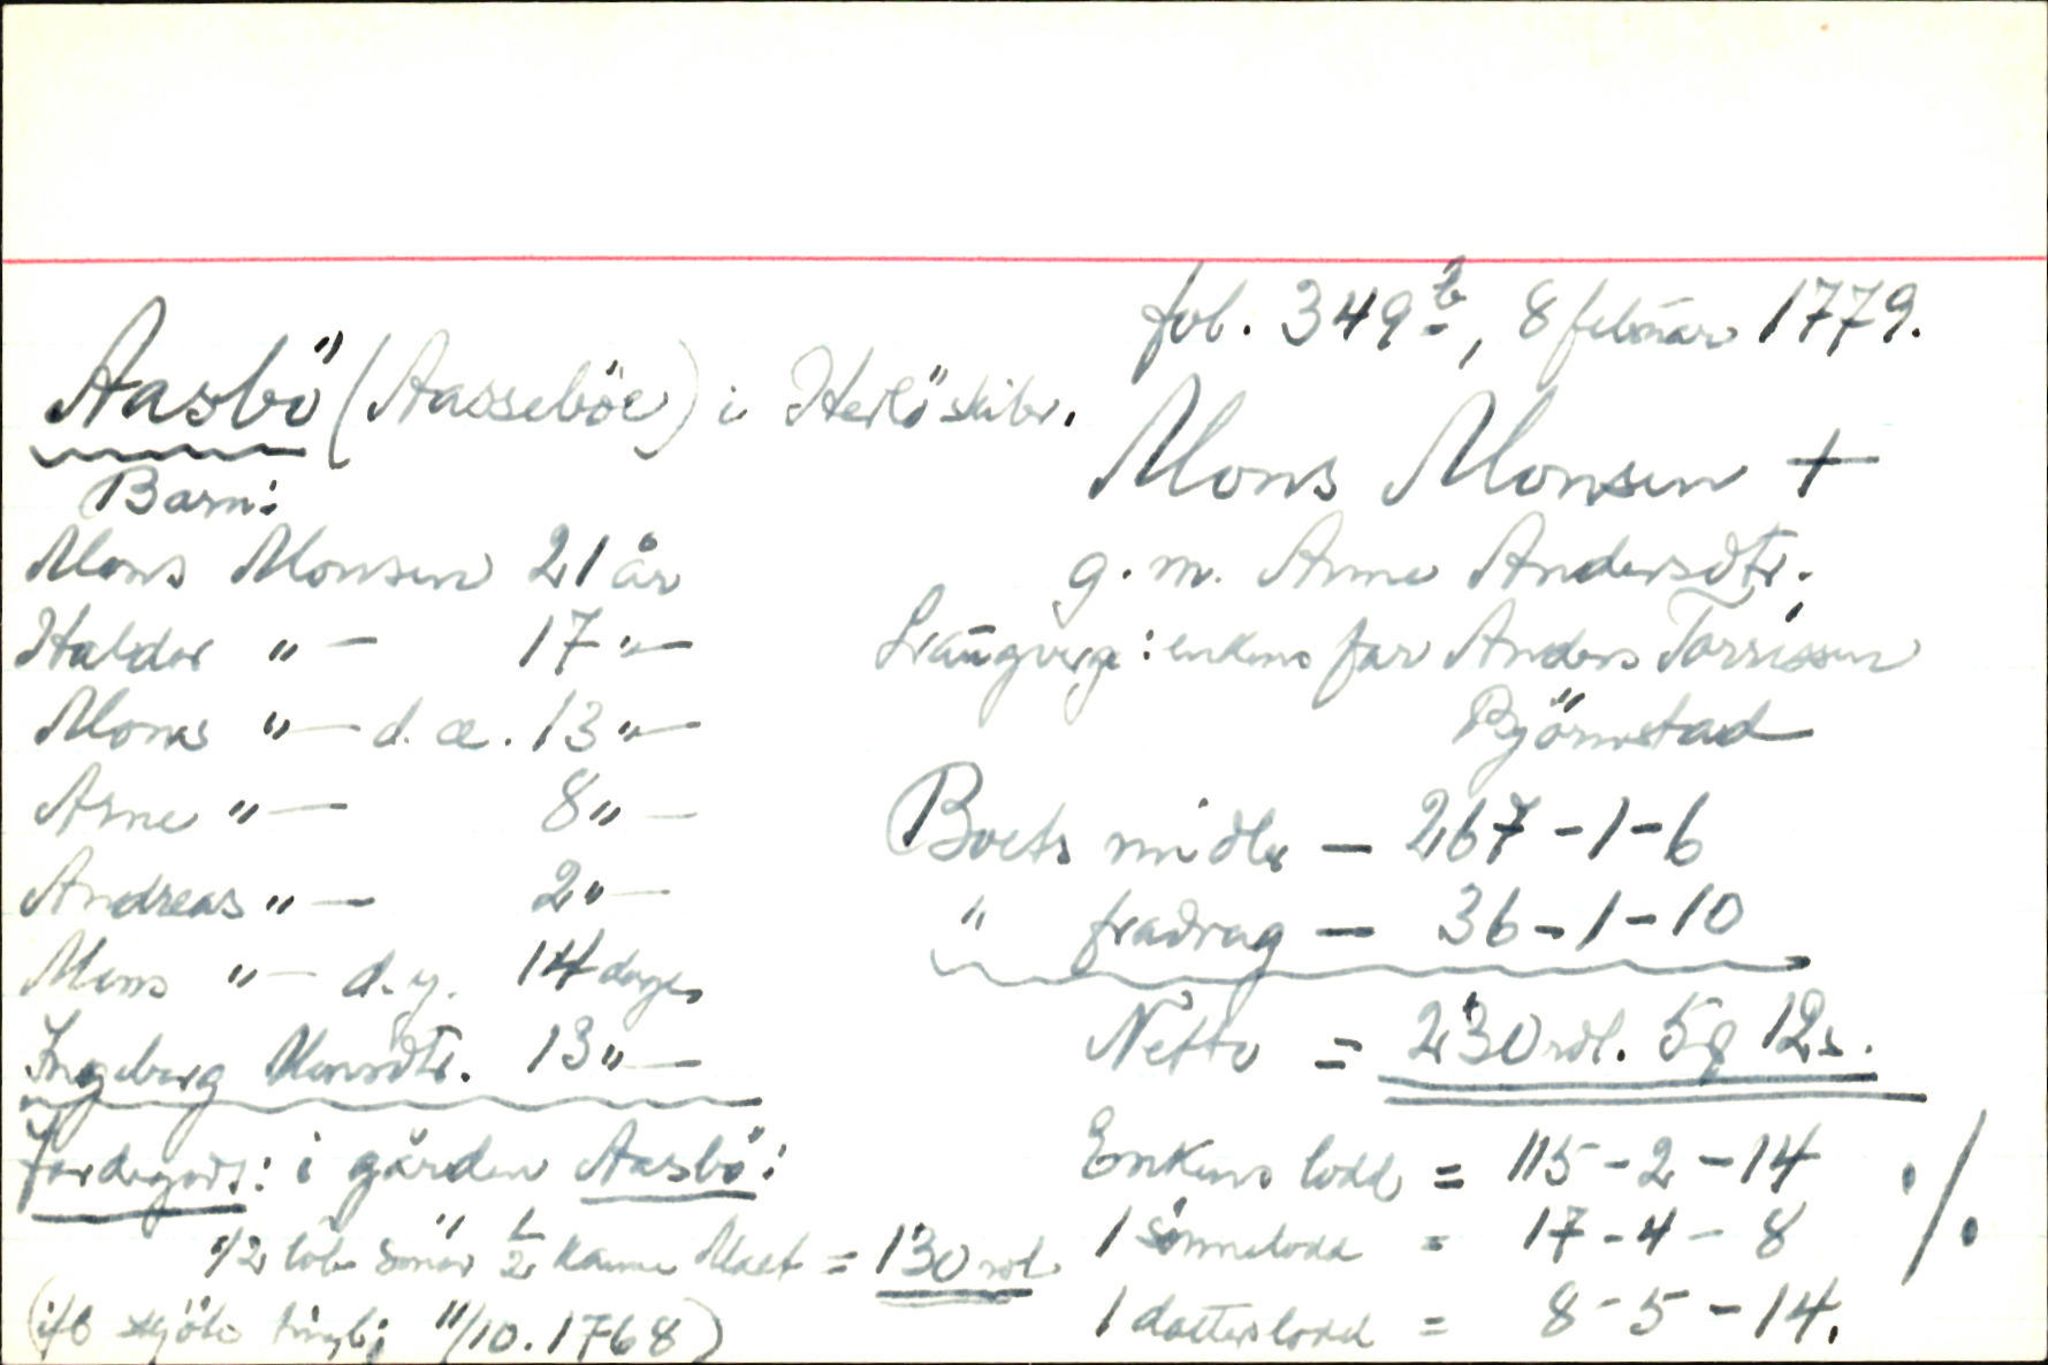 fol. 349 b, 8 februar 1779.
Aasbö (Aasseböe) i Herlö skibr.
Mons Monsen +
g. m. Anne Andersdtr.
Laugverge: enkens far Anders Torrissen
Björnestad
Barn:
Mons Monsen 21 år
Haldor " — 17 " —
Monas " — d. æ. 13 " —
Arne " — 8 " —
Andreas " — 2 " —
Mons " — d. y. 14 dage
Ingeborg Monsdtr. 13 " —
Jordegods: i gården Aasbö:
1/2 löb smör 1/2 kanne Malt = 130 rdl.
(ifl skjöte tingl. 11/10.1768)
Boets midler — 267 - 1 - 6
" fradrag — 36 - 1 - 10
Netto = 230 rdl. 5 12 s.
Enkens lodd = 115 - 2 - 14
1 sönnelodd = 17 - 4 - 8
1 datterslodd = 8 - 5 - 14.
./.